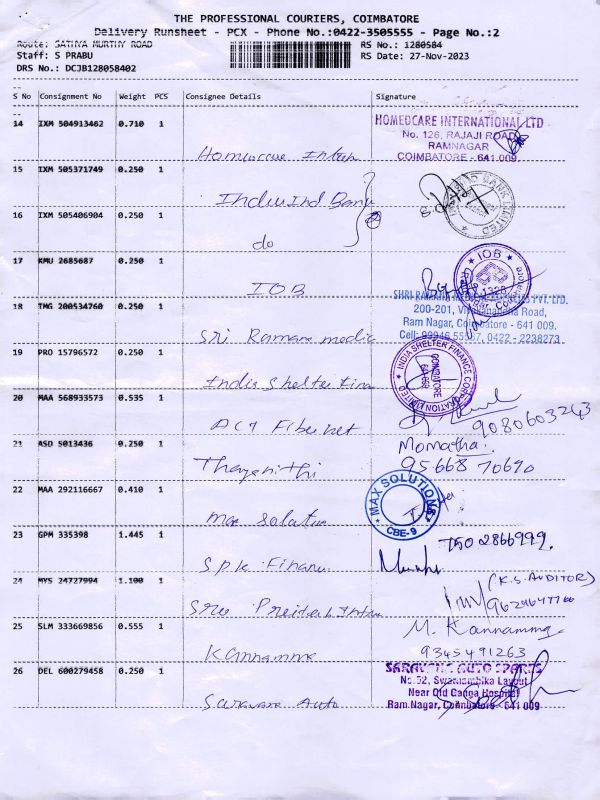 THE PROFESSIONAL COURIERS, COIMBATORE
Delivery Runsheet - PCX - Phone No.:0422-3505555 - Page No.:2
Route: SATHYA MURTHY ROAD
RS No.: 1280584
Staff: S PRABU
RS Date: 27-Nov-2023
DRS No.: DCJB128058402
S No Consignment No Weight PCS Consignee Details Signature
14 IXM 504913462 0.710 1
HOMEOCARE INTERNATIONAL LTD
No. 126, RAJAJI ROAD
RAMNAGAR
COIMBATORE - 641 009
Homeocare Intern
15 IXM 505371749 0.250 1
IndusInd Bank
16 IXM 505406904 0.250 1
do
17 KMU 2685687 0.250 1
IOB
IOB
1328
18 TMG 200534760 0.250 1
200-201, Vivekanandha Road,
Ram Nagar, Coimbatore - 641 009.
Cell: 99946 55567, 0422 - 2238273
Sri Ramana medic
19 PRO 15796572 0.250 1
INDIA SHELTER FINANCE CORPORATION LIMITED
COIMBATORE
India Shelter Fina
20 MAA 568933573 0.535 1
ACT Fibernet
9080603243
21 ASD 5013436 0.250 1
Momatha.
95668 70690
Thayanithi
22 MAA 292116667 0.410 1
MAX SOLUTIONS
CBE-9
max solution
23 GPM 335398 1.445 1
7502866999.
S.P.K. Finance
24 MYS 24727994 1.100 1
(K.S. AUDITOR)
Sree
25 SLM 333669856 0.555 1
M. Kannamma.
9345491263
Kannamma
26 DEL 600279458 0.250 1
SARAVANA AUTO SPARES
No.52, Swarnambika Layout
Near Old Ganga Hospital
Ram Nagar, Coimbatore - 641 009
Saravana Auto